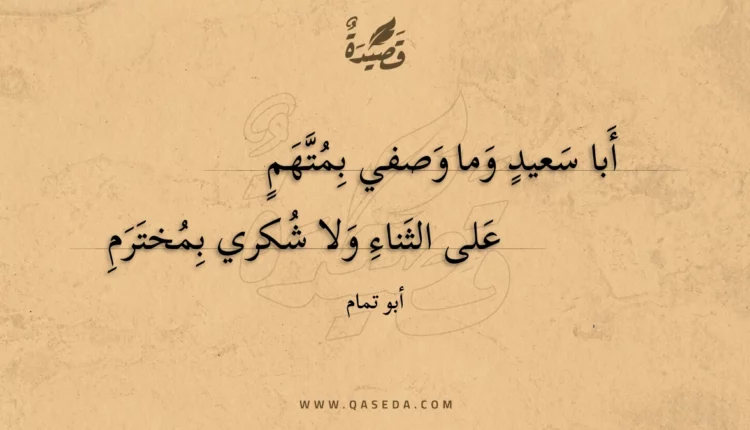 قَصِيْدَةٌ
أَبا سَعيدٍ وَما وَصفي بِمُتَّهَمٍ
عَلى الثَناءِ وَلا شُكري بِمُختَرَمِ
أبو تمام
WWW.QASEDA.COM